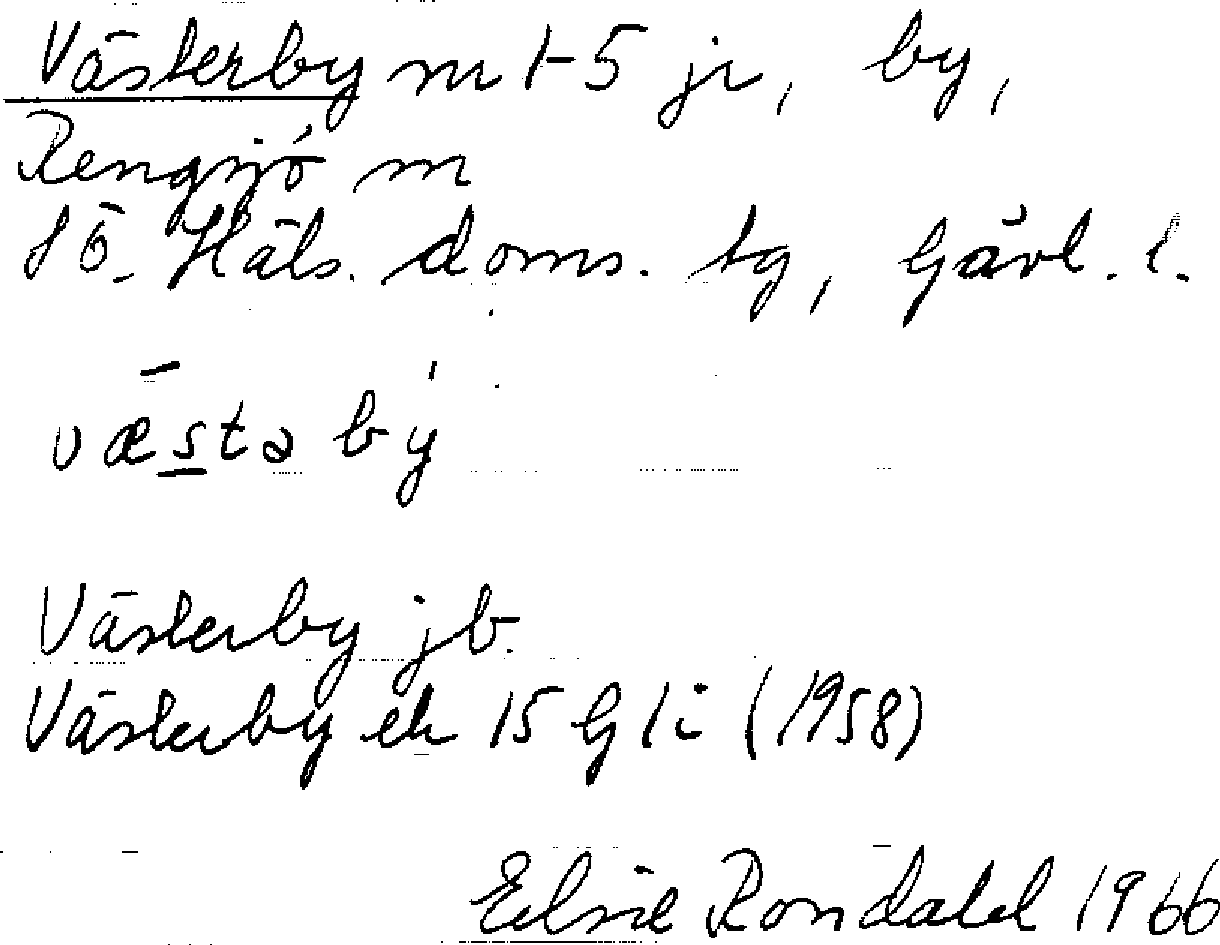 Västerby nr 1-5 jr, by,
Rengsjö sn
Sö. Häls. doms. tg, Gävl. l.
væstə bý
Västerby jb.
Västerby ek 15 G 1 i (1958)
Elsie Rondahl 1966